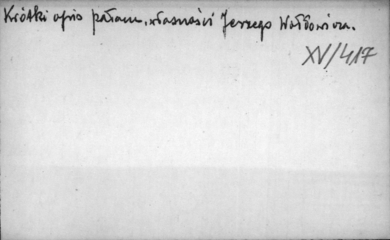 Krótki opis pałacu, własności Jerzego Wołłowicza.
XV/417